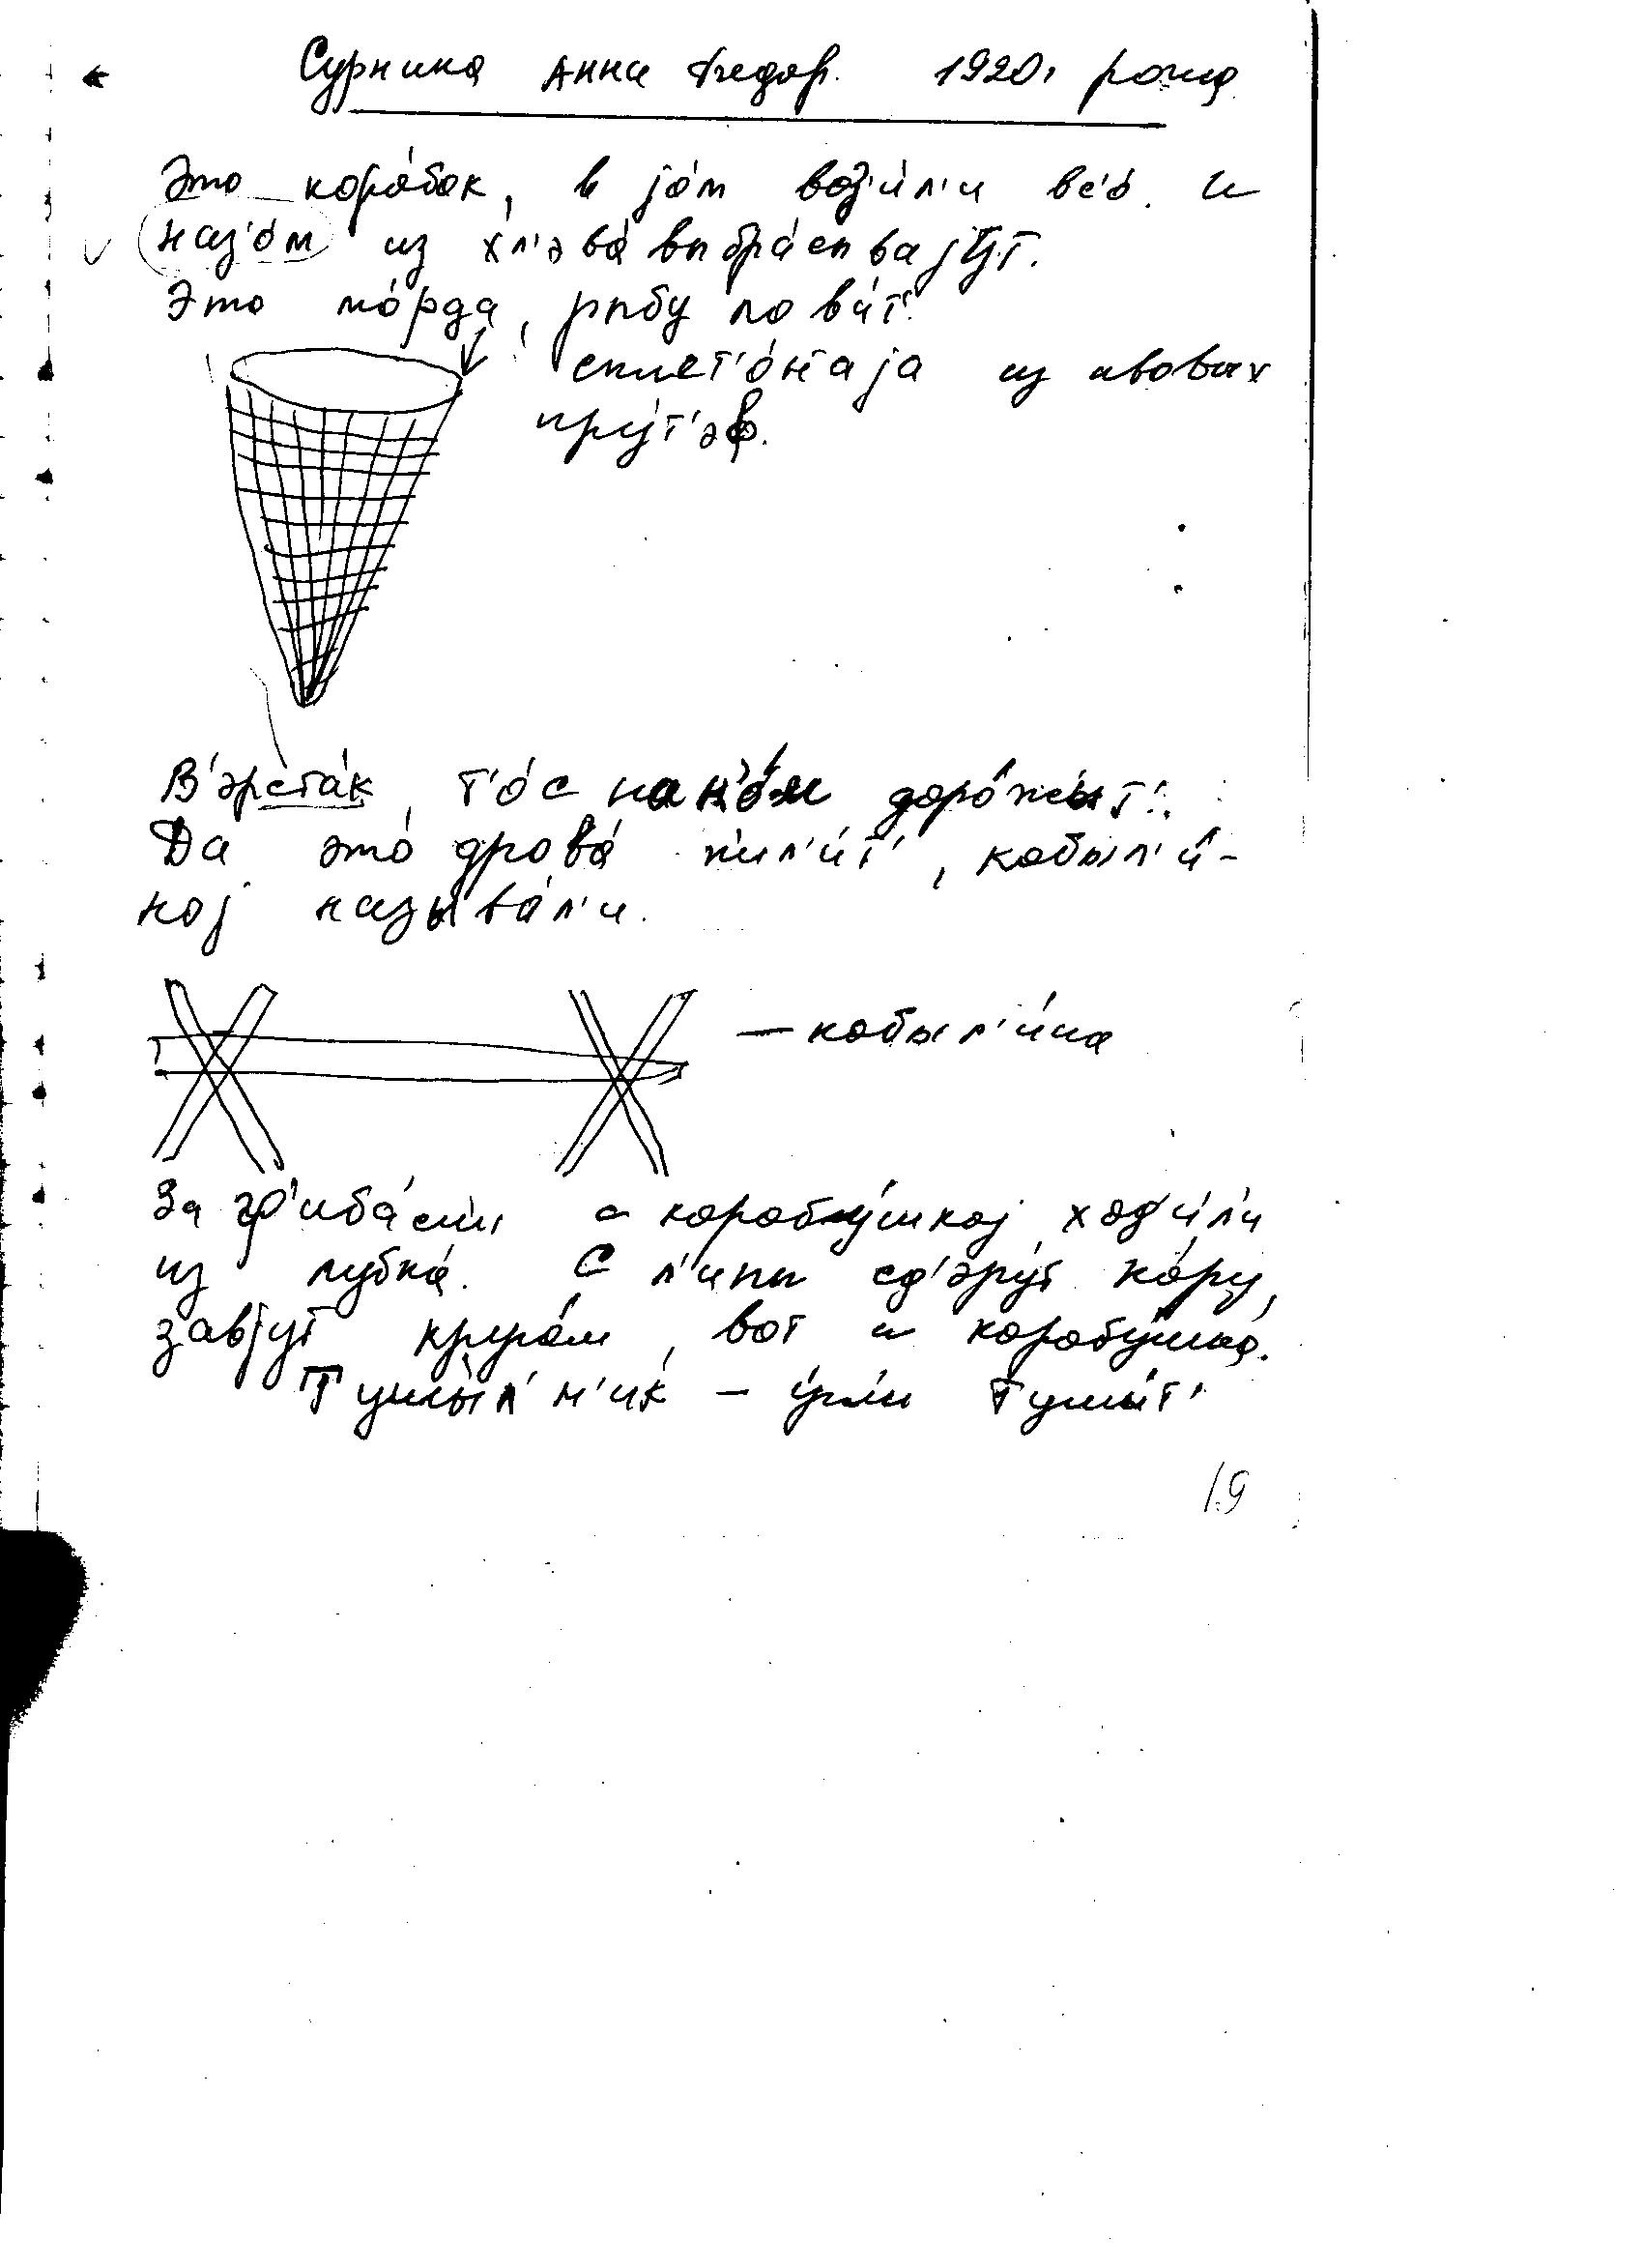 Сурнина Анна Федор. 1920г рожд.
Это коро́бок, в jо́м воз'и́л'и вс'о́. и
наз'о́м из хл'эва́ выбра́сываjут.
Это мо́рда, рыбу лови́т'
сплет'о́наjа из ивовых
пру́т'эф.
В'эрста́к, т'о́с на н'о́м доро́жыт'.
Да это́ дрова́ пил'и́т', кобыл'и́-
ноj называ́л'и.
— кобыл'и́на
За гр'иба́ми с коробу́шкоj ход'и́л'и
из лубка́. С л'ипы сд'эру́т ко́ру,
завjу́т круго́м, вот и коробу́шка.
Тушы́л'н'ик – у́гли тушы́т'
19